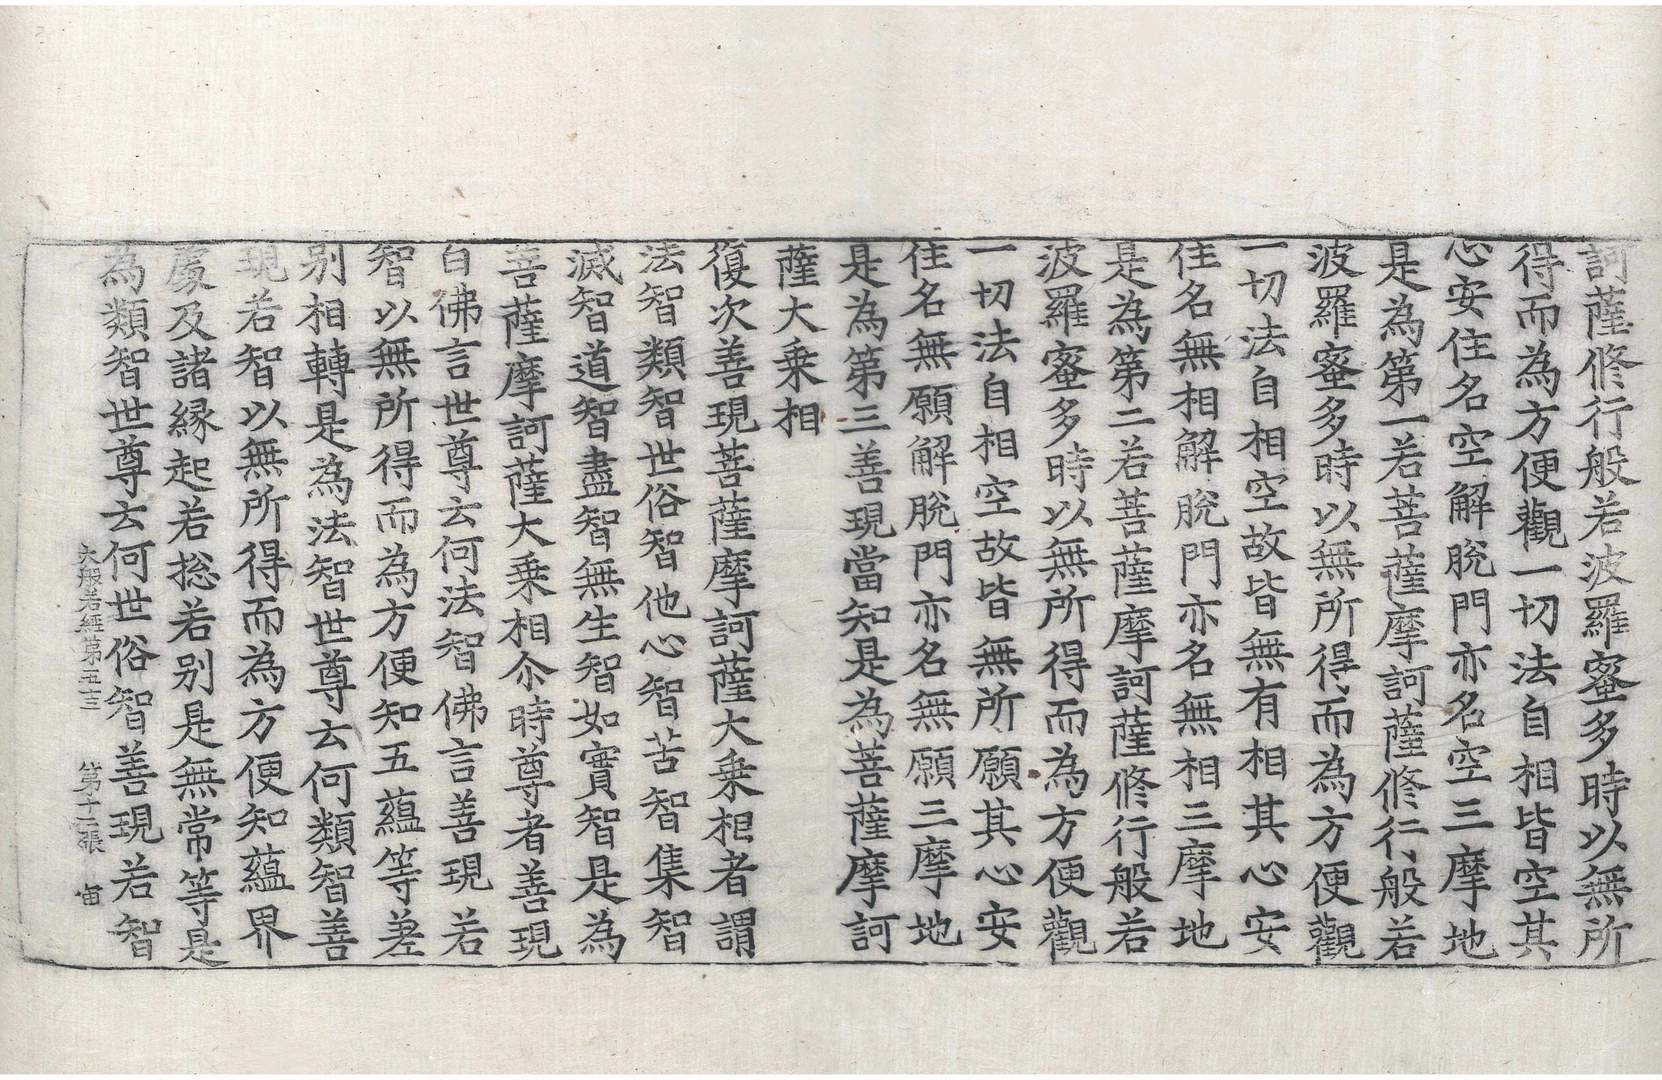 訶薩修行般若波羅蜜多時以無所
得而為方便觀一切法自相皆空其
心安住名空解脫門亦名空三摩地
是為第一若菩薩摩訶薩修行般若
波羅蜜多時以無所得而為方便觀
一切法自相空故皆無有相其心安
住名無相解脫門亦名無相三摩地
是為第二若菩薩摩訶薩修行般若
波羅蜜多時以無所得而為方便觀
一切法自相空故皆無所願其心安
住名無願解脫門亦名無願三摩地
是為第三善現當知是為菩薩摩訶
薩大乗相
復次善現菩薩摩訶薩大乗相者謂
法智類智世俗智他心智苦智集智
滅智道智盡智無生智如實智是為
菩薩摩訶薩大乗相尒時尊者善現
白佛言世尊云何法智佛言善現若
智以無所得而為方便知五蘊等差
別相轉是為法智世尊云何類智善
現若智以無所得而為方便知蘊界
處及諸緣起若捴若別是無常等是
為類智世尊云何世俗智善現若智
大般若經第五十三 第十二張 宙